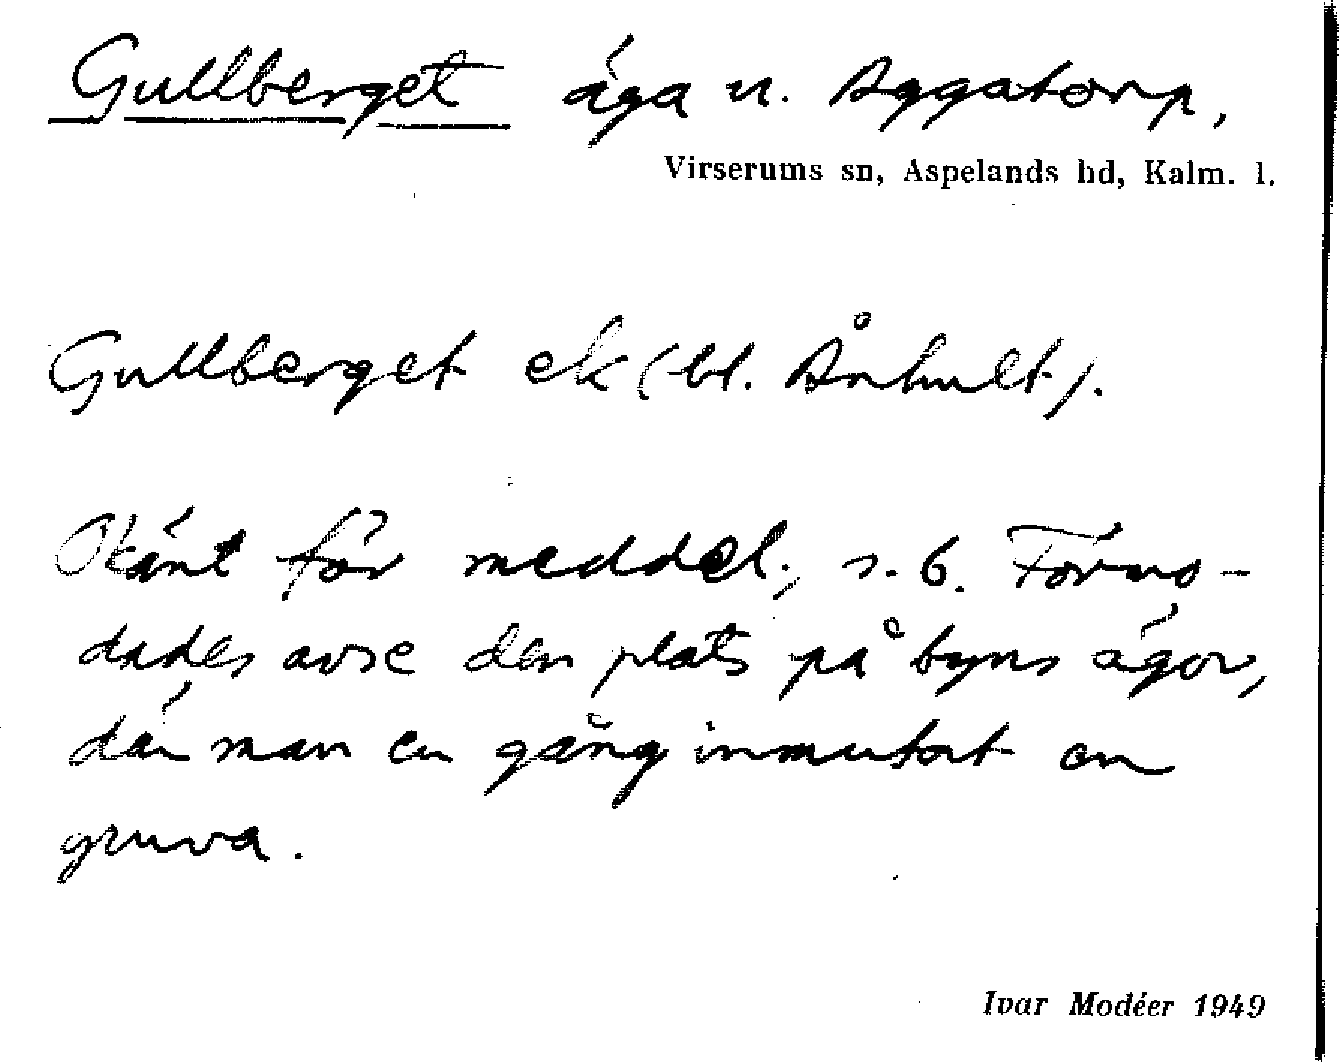 Gullberget äga u. Aggatorp,
Virserums sn, Aspelands hd, Kalm. l.
Gullberget ek (bl. Ånhult).
Okänt för meddel., s. 6. Förmo-
dades avse den plats på byns ägor,
där man en gång inmutat en
gruva.
Ivar Modéer 1949